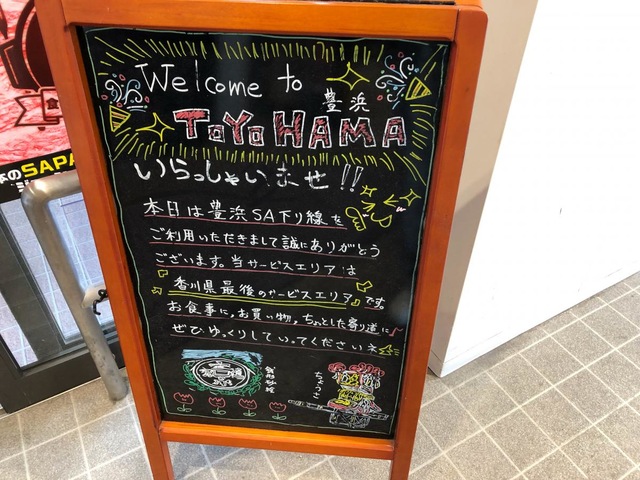 Welcome to
豊浜
TOYOHAMA
いらっしゃいませ!!
本日は豊浜SA下り線を
ご利用いただきまして誠にありがとう
ございます。当サービスエリアは
『香川県最後のサービスエリア』です。
お食事に,お買い物,ちょっとした寄り道に♪
ぜひゆっくりしていってくださいネ
銭形砂絵
ちょうさ
本のSAPA